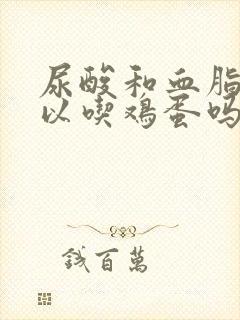 尿酸和血脂
以喫鸡蛋吗
錢百萬